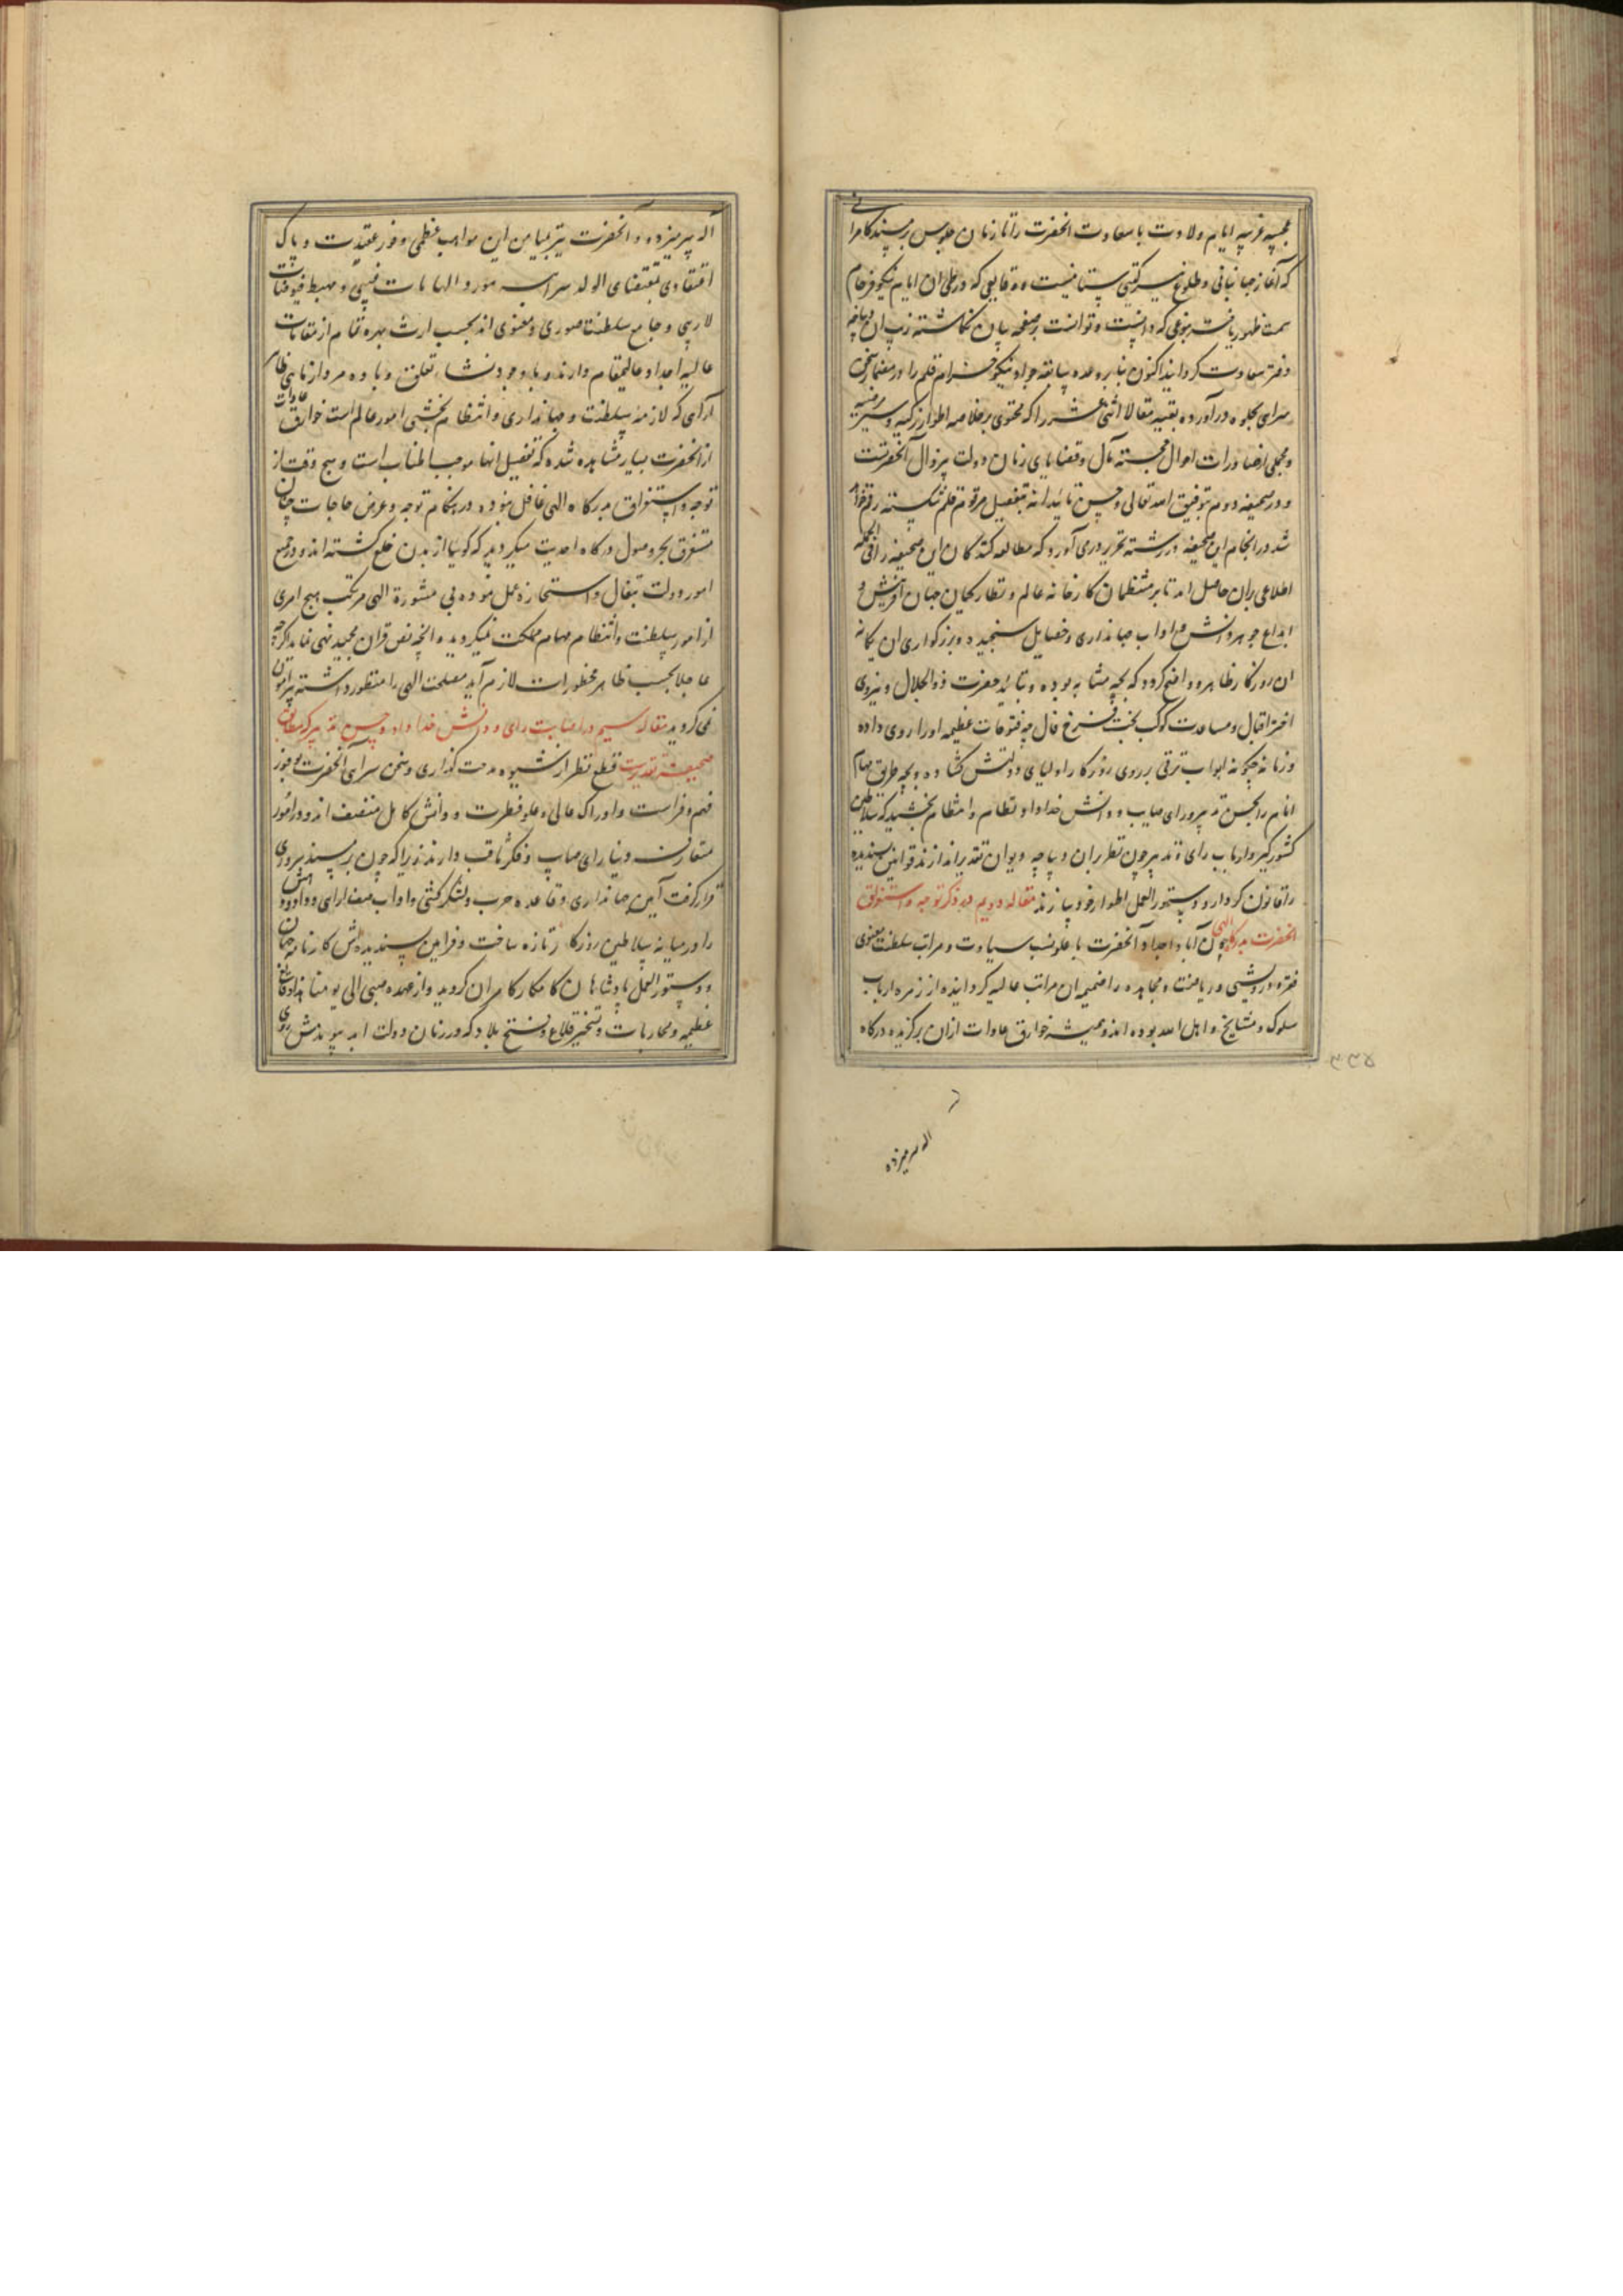 عجیبه غریبه ایام ولادت با سعادت آنحضرت را تا زمان جلوس بر مسند کامرانی
که آغاز جهانبانی و طلوع نیر گیتی ستانیست و وقایعی که در طی آن ایام نیکو فرجام
سمت ظهور یافت بنوعی که دانست و توانست بر صفحه بیان نگاشته زیب آن دیباچه
دفتر سعادت گردانید اکنون بنابر وعده سابقه جواد نیکو خرام قلم را در مضمار سخن
سرای بجلوه در آورده بقیه مقالا اثنی عشر را که محتوی بر خلاصه اطوار زکیه و سیر مرضیه
و مجملی از صادرات احوال خجسته مآل و قضایای زمان دولت بیزوال آنحضرتست
و در صحیفه دوم بتوفیق الله تعالی و حسن تائیدانه بتفصیل مرقوم قلم شکسته رقم خواهد
شد در انجام این صحیفه در رشته تحریر در می آورد که مطالعه کنندگان این صحیفه را فی الجمله
اطلاعی بران حاصل آمد تا بر منتظمان کارخانه عالم و نظارگیان جهان آفرینش و
ابداع جوهر دانش و آداب جهانداری و خصایل سنجیده و بزرگواری آن یگانه
آن روزگار ظاهر و واضح گردد که بچه مثابه بوده و بتائید حضرت ذو الجلال و نیروی
اختر اقبال و مساعدت کوکب بخت فرخ فال چه فتوحات عظیمه او را روی داده
و زمانه چگونه ابواب ترقی بر روی روزگار اولیای دولتش گشاده و بچه طریق مهام
انام را بحسن تدبیر و رای صایب و دانش خداداد نظام و انتظام بخشیده که سلاطین
کشورگیر و ارباب رای و تدبیر چون نظر بران دیباچه دیوان تقدیر اندازند قوانین پسندیده
را قانون کردار و دستور العمل اطوار خود سازند مقاله دویم در ذکر توجه و استغراق
آنحضرت بدرگاه الهی چون آبا و اجداد آنحضرت با علو نسب سیادت و مراتب سلطنت معنوی
فقر و درویشی و ریاضت و مجاهده را ضمیمه آن مراتب عالیه گردانیده از زمره ارباب
سلوک و مشایخ و اهل الله بوده اند و همیشه خوارق عادات ازان برگزیده درگاه
اله سر میزده
اله سر میزده و آنحضرت نیز بمیامن این مواهب عظمی و فور عقیدت و پاک
اعتقادی بمقتضای الولد سر ابیه مورد الهامات غیبی و مهبط فیوضات
لاریبی و جامع سلطنت صوری و معنوی اند بحسب ارث بهره تمام از مقامات
عالیه اجداد عالیمقام دارند و با وجود نشاء تعلق و باده مرد آزمای نظام
آرای که لازمه سلطنت و جهانداری و انتظام بخشی امور عالم است خوارق عادات
از آنحضرت بسیار مشاهده شده که تفصیل آنها موجب اطناب است و هیچ وقت از
توجه و استغراق بدرگاه الهی غافل نبوده در هنگام توجه و عرض حاجات چنان
مستغرق بحر وصول درگاه احدیت میگردید که گوییا از بدن خلع گشته اند و در جمیع
امور دولت بتفال و استخاره عمل نموده بی مشورة الهی مرتکب هیچ امری
از امور سلطنت و انتظام مهام مملکت نمیگردیده آنچه نص قرآن مجید نهی نماید اگرچه
عاجلا بحسب ظاهر محظورات لازم آید مصلحت الهی را منظور داشته پیرامون
نمی گردید مقاله سیم در اصابت رای و دانش خداداد و حسن تدبیر که مطابق
صحیفه تقدیرست قطع نظر از شیوه مدحت گذاری و سخن سرای آنحضرت بوفور
فهم و فراست و ادراک عالی و علو فطرت و دانش کامل متصف اند و در امور
متعارف دنیا رای صایب و فکر ثاقب دارند زیرا که چون بر مسند سروری
قرار گرفت آیین جهانداری و قاعده حرب و لشکرکشی و آداب صف آرای و داد و دهش
را در میانه سلاطین روزگار تازه ساخت و فرامین پسندیده اش کارنامه جهان
و دستور العمل پادشاهان کامکار کامران گردید و از عهده صبی الی یومنا هذا وقایع
عظیمه و محاربات و تسخیر قلاع و فتح بلاد که در زمان دولت ابد پیوندش روی